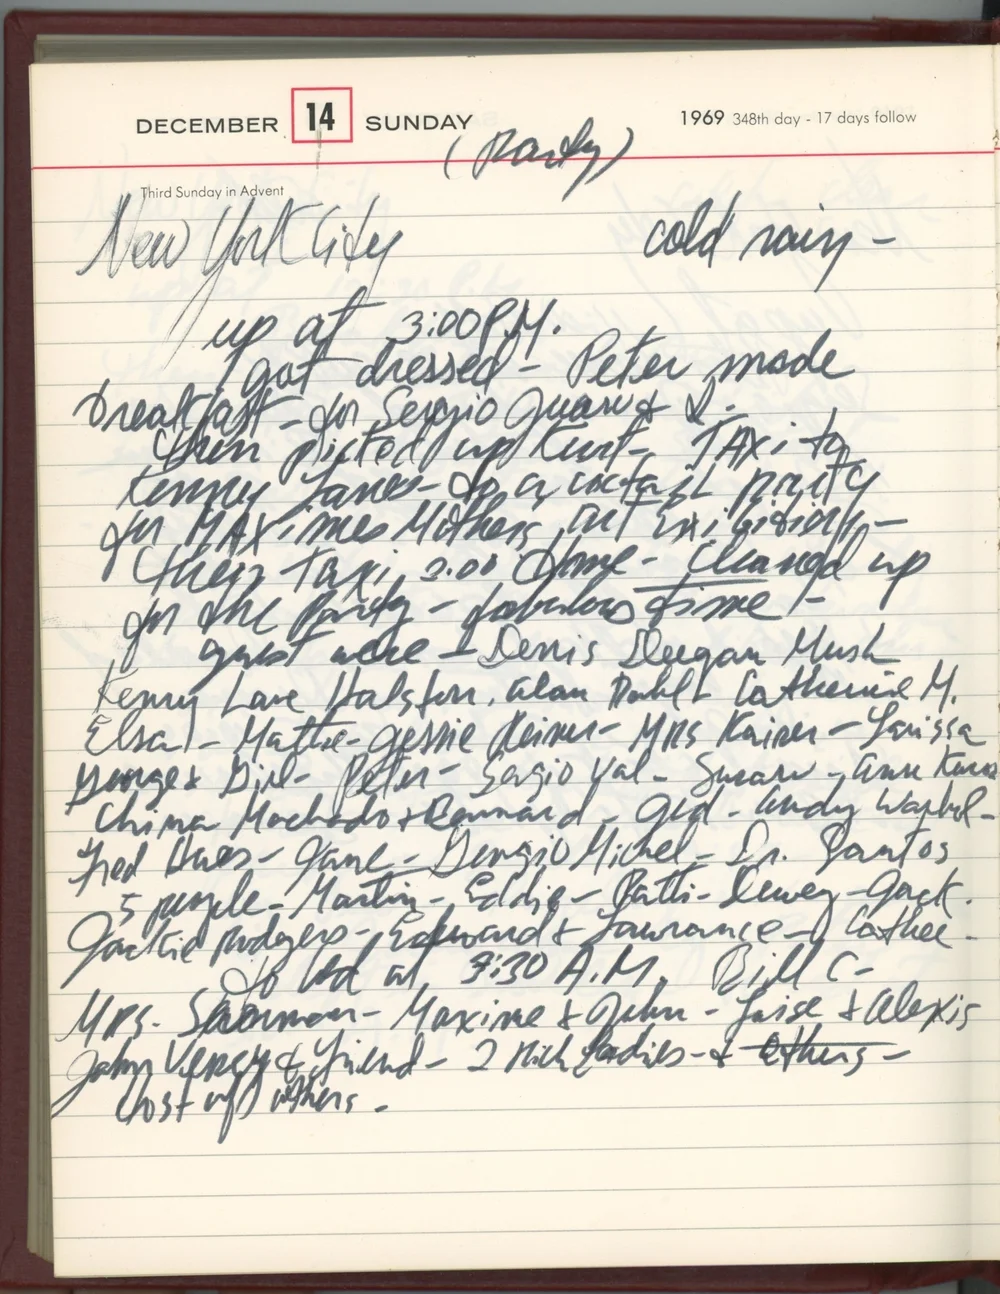 DECEMBER 14 SUNDAY
1969 348th day - 17 days follow
(Party)
Third Sunday in Advent
New York City cold rainy -
up at 3:00 P.M.
got dressed - Peter made
breakfast - for Sergio &
then picked up Kurt - TAXi to
Kenny Lanes - to a cocktail party
for MAXimes Mothers art exibition -
then Taxi 2.00 home - Cleaned up
for the Party - fabulous time! -
guest were - Denis Deegan Mush
Kenny Lane Halston. Alan Catherine M.
Elsa - Mattie - Jessie - Mrs Kainer - Larissa
George & Girl - Peter - Sergio Val - Susan - Ann
China Machado + Bernard - Gid - Andy Warhol -
Fred - Jane - Giorgio Michel - Dr. Santos
5 people - Martin - Eddie - Patti - Dewey - Jack.
Jackie Rodgers - Edward & Lawrance - Cathee -
to bed at 9:30 A.M. Bill C -
Mrs. - Maxime & John - Luise & Alexis
John & friend - 2 Rich Ladies - & others -
Host of others -